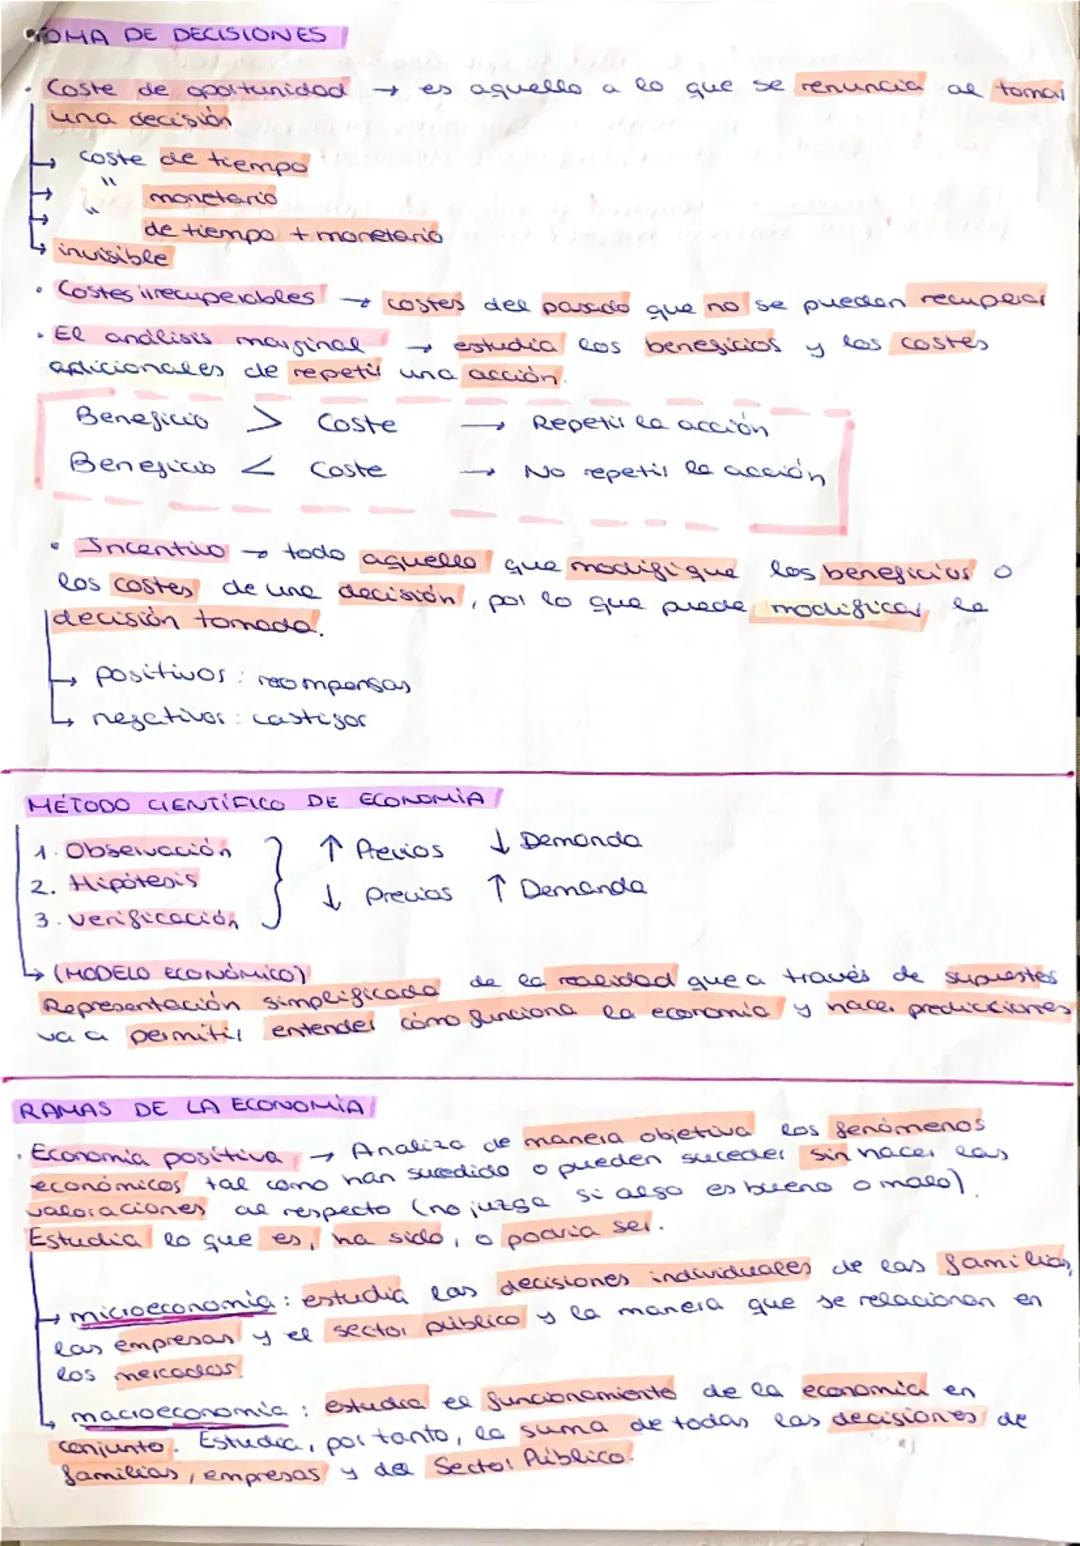 TOMA DE DECISIONES
· Coste de oportunidad → es aquello a lo que se renuncia al tomar
una decisión
→ coste de tiempo
→ " monetario
→ " de tiempo + monetario
→ invisible
· Costes irrecuperables → costes del pasado que no se pueden recuperar
· El análisis marginal → estudia los beneficios y los costes
adicionales de repetir una acción.
Beneficio > Coste → Repetir la acción
Beneficio < Coste → No repetir la acción
· Incentivo → todo aquello que modifique los beneficios o
los costes de una decisión, por lo que puede modificar la
decisión tomada.
→ positivos: recompensas
→ negativos: castigos
MÉTODO CIENTÍFICO DE ECONOMÍA
1. Observación
2. Hipótesis
3. Verificación
↑ Precios ↓ Demanda
↓ Precios ↑ Demanda
→ (MODELO ECONÓMICO)
Representación simplificada de la realidad que a través de supuestos
va a permitir entender cómo funciona la economía y hacer predicciones
RAMAS DE LA ECONOMÍA
· Economía positiva → Analiza de manera objetiva los fenómenos
económicos tal como han sucedido o pueden suceder sin hacer las
valoraciones al respecto (no juzga si algo es bueno o malo).
Estudia lo que es, ha sido, o podría ser.
→ microeconomía: estudia las decisiones individuales de las familias,
las empresas y el sector público y la manera que se relacionan en
los mercados.
→ macroeconomía: estudia el funcionamiento de la economía en
conjunto. Estudia, por tanto, la suma de todas las decisiones de
familias, empresas y del Sector Público.